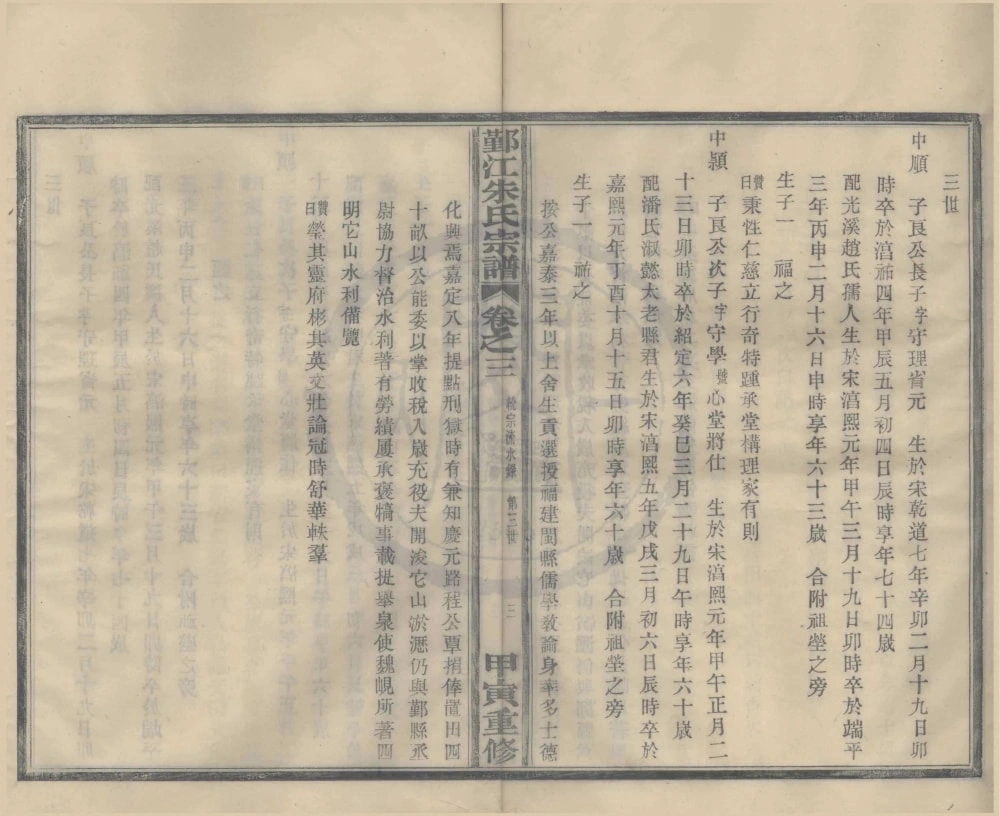 三世
中順　子良公長子字守理省元　生於宋乾道七年辛卯二月十九日卯
時卒於淳祐四年甲辰五月初四日辰時享年七十四歲
配光溪趙氏孺人生於宋淳熙元年甲午三月十九日卯時卒於端平
三年丙申二月十六日申時享年六十三歲　合附祖塋之旁
生子一　福之
中穎　子良公次子字守學號心堂將仕　生於宋淳熙元年甲午正月二
十三日卯時卒於紹定六年癸巳三月二十九日午時享年六十歲
贊曰秉性仁慈立行奇特踵承堂構理家有則
配潘氏淑懿太老縣君生於宋淳熙五年戊戌三月初六日辰時卒於
嘉熙元年丁酉十月十五日卯時享年六十歲　合附祖塋之旁
生子一　祐之
按公嘉泰三年以上舍生貢選授福建閩縣儒學教諭身率多士德
鄞江朱氏宗譜　卷之三　第三世　三　甲寅重修
化興焉嘉定八年提點刑獄時有兼知慶元路程公覃捐俸置田四
十畝以公能委以堂收稅入歲充役夫開浚它山淤瀝仍與鄞縣丞
尉協力督治水利著有勞績屢承褒犒事載提舉泉使魏峴所著四
明它山水利備覽
贊曰瑩其靈府彬其英文壯論冠時舒華軼羣